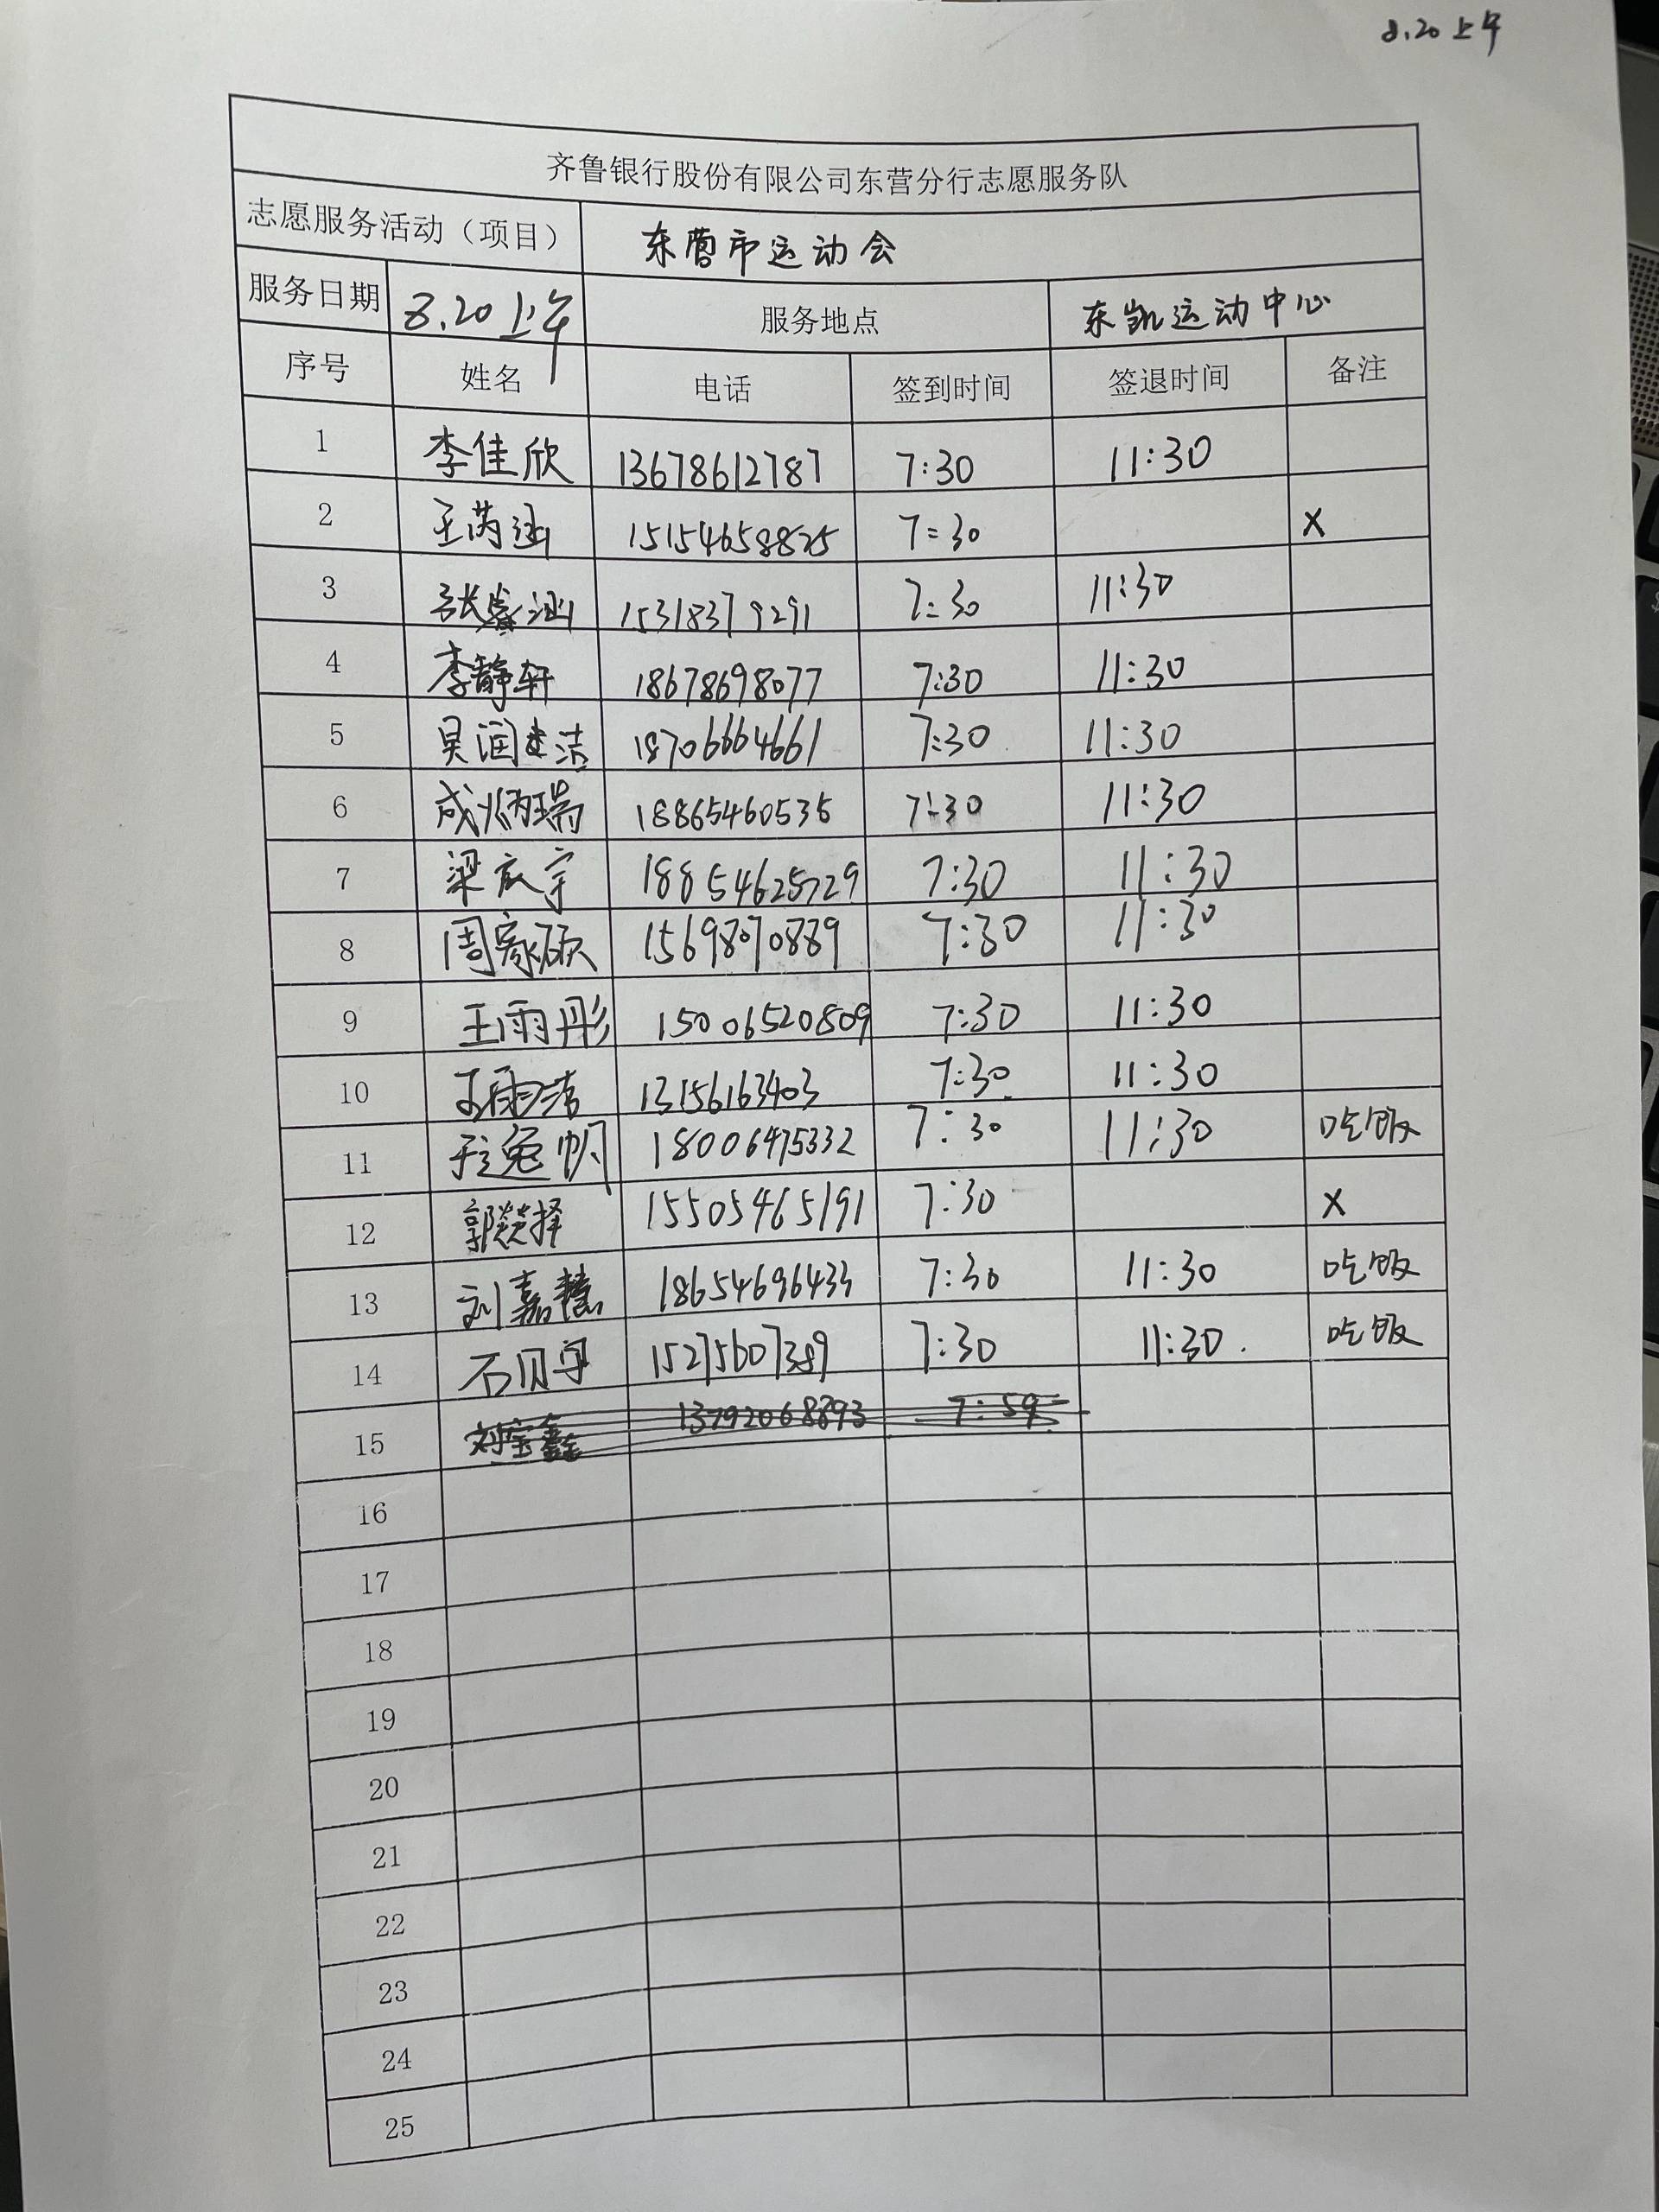 8.20上午
齐鲁银行股份有限公司东营分行志愿服务队
志愿服务活动（项目） 东营市运动会
服务日期 8.20上午 服务地点 东凯运动中心
序号 姓名 电话 签到时间 签退时间 备注
1 李佳欣 13678612787 7:30 11:30
2 王芮涵 15154658825 7:30 X
3 张睿涵 15318379291 7:30 11:30
4 李静轩 18678698077 7:30 11:30
5 吴润洁 18706664661 7:30 11:30
6 成炳瑞 18865460535 7:30 11:30
7 梁宸宇 18854625729 7:30 11:30
8 周家硕 15698070889 7:30 11:30
9 王雨彤 15006520809 7:30 11:30
10 王雨洁 13156163403 7:30 11:30
11 帆 18006475332 7:30 11:30 吃饭
12 郭择 15505465191 7:30 X
13 刘嘉慧 18654696433 7:30 11:30 吃饭
14 石贝宁 15275607389 7:30 11:30. 吃饭
15 刘宝鑫 13792068893 7:59
16
17
18
19
20
21
22
23
24
25